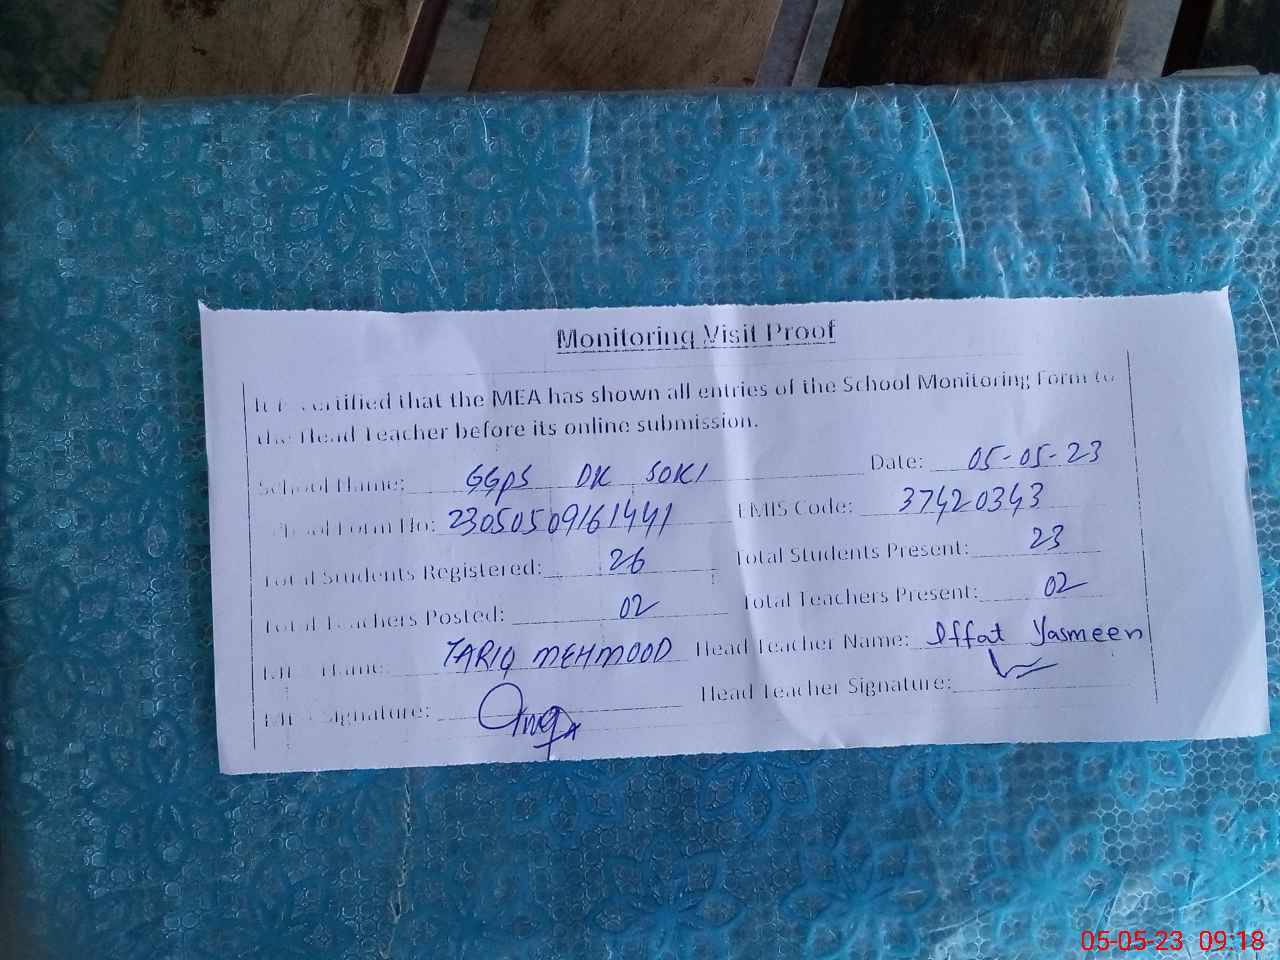 Monitoring Visit Proof
It is certified that the MEA has shown all entries of the School Monitoring Form to
the Head Teacher before its online submission.
School Name: GGPS DK SOKI Date: 05-05-23
Form No: 23050509161441 EMIS Code: 37420343
Total Students Registered: 26 Total Students Present: 23
Total Teachers Posted: 02 Total Teachers Present: 02
Name: TARIQ MEHMOOD Head Teacher Name: Iffat Yasmeen
Signature: Head Teacher Signature:
05-05-23 09:18